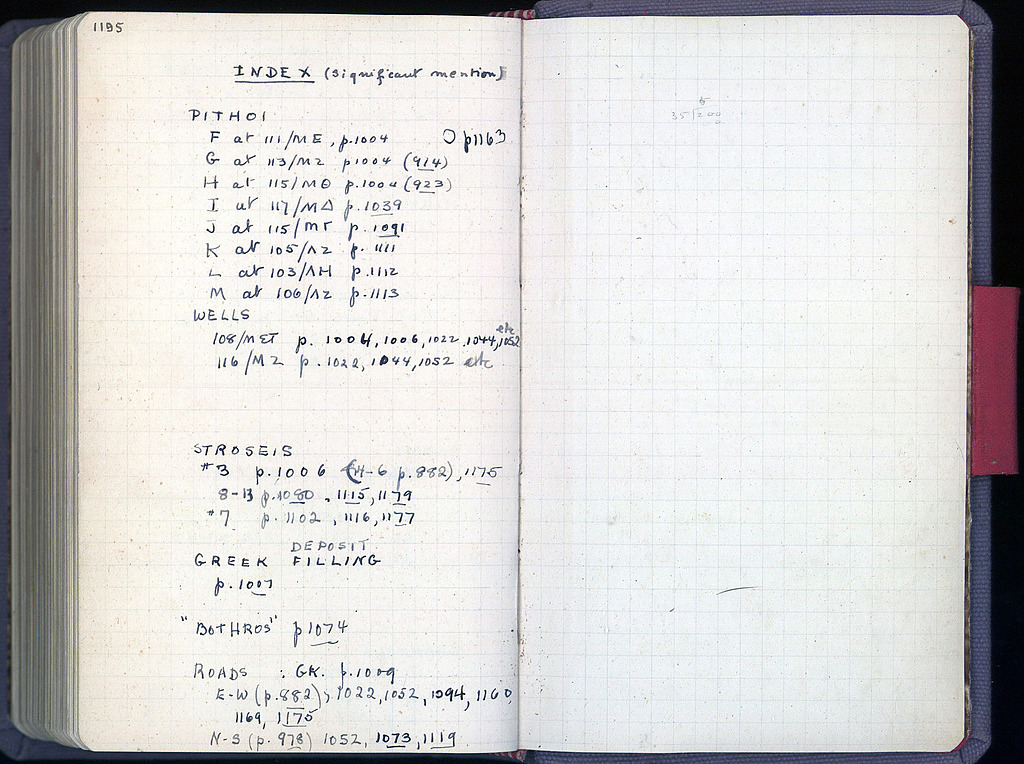 1195
INDEX (Significant mention)
PITHOI
F at 111/ME, p.1004 O p1163
G at 113/MZ p1004 (914)
H at 115/MΘ p.1004 (923)
I at 117/MΔ p.1039
J at 115/MΓ p.1091
K at 105/ΛZ p.1111
L at 103/ΛH p.1112
M at 106/ΛZ p.1113
WELLS
108/MΣT p. 1004, 1006, 1022, 1044, 1052 etc
116/MZ p.1022, 1044, 1052 etc
STROSEIS
#3 p.1006 (#-6 p.882), 1175
8-13 p.1080, 1115, 1179
#7 p.1102, 1116, 1177
DEPOSIT
GREEK FILLING
p.1007
"BOTHROS" p1074
ROADS : GK. p.1009
E-W (p.882), 1022, 1052, 1094, 1160,
1169, 1175
N-S (p. 978) 1052, 1073, 1119
5
35 200